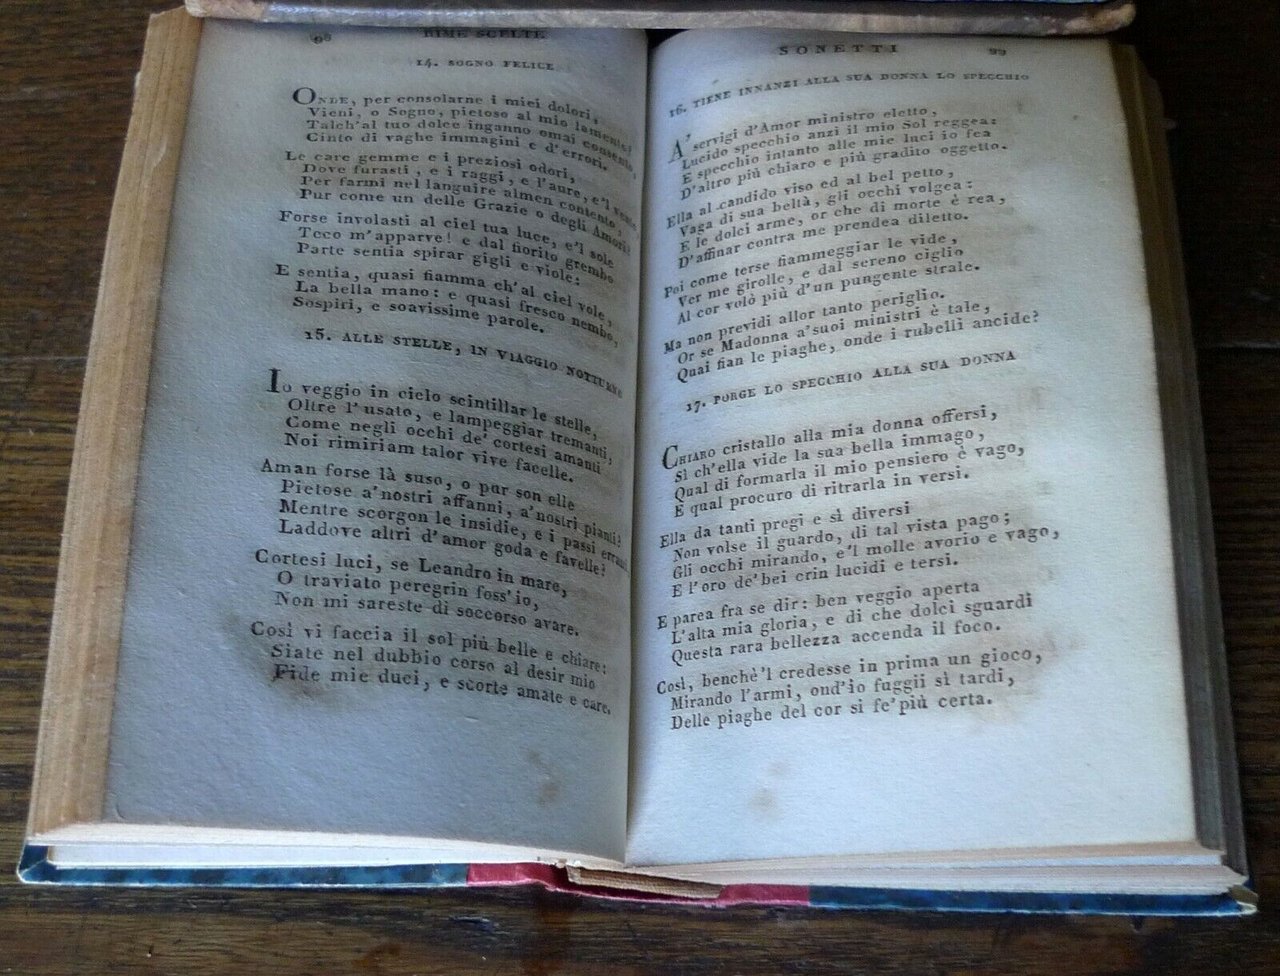 98
RIME SCELTE
14. SOGNO FELICE
ONDE, per consolarne i miei dolori,
Vieni, o Sogno, pietoso al mio lamento?
Talch'al tuo dolce inganno omai consento,
Cinto di vaghe immagini e d'errori.
Le care gemme e i preziosi odori,
Dove furasti, e i raggi, e l'aure, e'l vento
Per farmi nel languire almen contento,
Pur come un delle Grazie o degli Amori?
Forse involasti al ciel tua luce, e'l sole
Teco m'apparve! e dal fiorito grembo
Parte sentia spirar gigli e viole:
E sentia, quasi fiamma ch'al ciel vole,
La bella mano: e quasi fresco nembo,
Sospiri, e soavissime parole.
15. ALLE STELLE, IN VIAGGIO NOTTURNO
Io veggio in cielo scintillar le stelle,
Oltre l'usato, e lampeggiar tremanti,
Come negli occhi de' cortesi amanti
Noi rimiriam talor vive facelle.
Aman forse là suso, o pur son elle
Pietose a'nostri affanni, a'nostri pianti?
Mentre scorgon le insidie, e i passi erranti
Laddove altri d'amor goda e favelle?
Cortesi luci, se Leandro in mare,
O traviato peregrin foss'io,
Non mi sareste di soccorso avare.
Così vi faccia il sol più belle e chiare:
Siate nel dubbio corso al desir mio
Fide mie duci, e scorte amate e care.
SONETTI
99
16. TIENE INNANZI ALLA SUA DONNA LO SPECCHIO
A' servigi d'Amor ministro eletto,
Lucido specchio anzi il mio Sol reggea:
E specchio intanto alle mie luci io fea
D'altro più chiaro e più gradito oggetto.
Ella al candido viso ed al bel petto,
Vaga di sua beltà, gli occhi volgea:
E le dolci arme, or che di morte è rea,
D'affinar contra me prendea diletto.
Poi come terse fiammeggiar le vide,
Ver me girolle, e dal sereno ciglio
Al cor volò più d'un pungente strale.
Ma non previdi allor tanto periglio.
Or se Madonna a'suoi ministri è tale,
Quai fian le piaghe, onde i rubelli ancide?
17. PORGE LO SPECCHIO ALLA SUA DONNA
CHIARO cristallo alla mia donna offersi,
Sì ch'ella vide la sua bella immago,
Qual di formarla il mio pensiero è vago,
E qual procuro di ritrarla in versi.
Ella da tanti pregi e sì diversi
Non volse il guardo, di tal vista pago;
Gli occhi mirando, e'l molle avorio e vago,
E l'oro de'bei crin lucidi e tersi.
E parea fra se dir: ben veggio aperta
L'alta mia gloria, e di che dolci sguardi
Questa rara bellezza accenda il foco.
Così, benchè'l credesse in prima un gioco,
Mirando l'armi, ond'io fuggii sì tardi,
Delle piaghe del cor si fe'più certa.